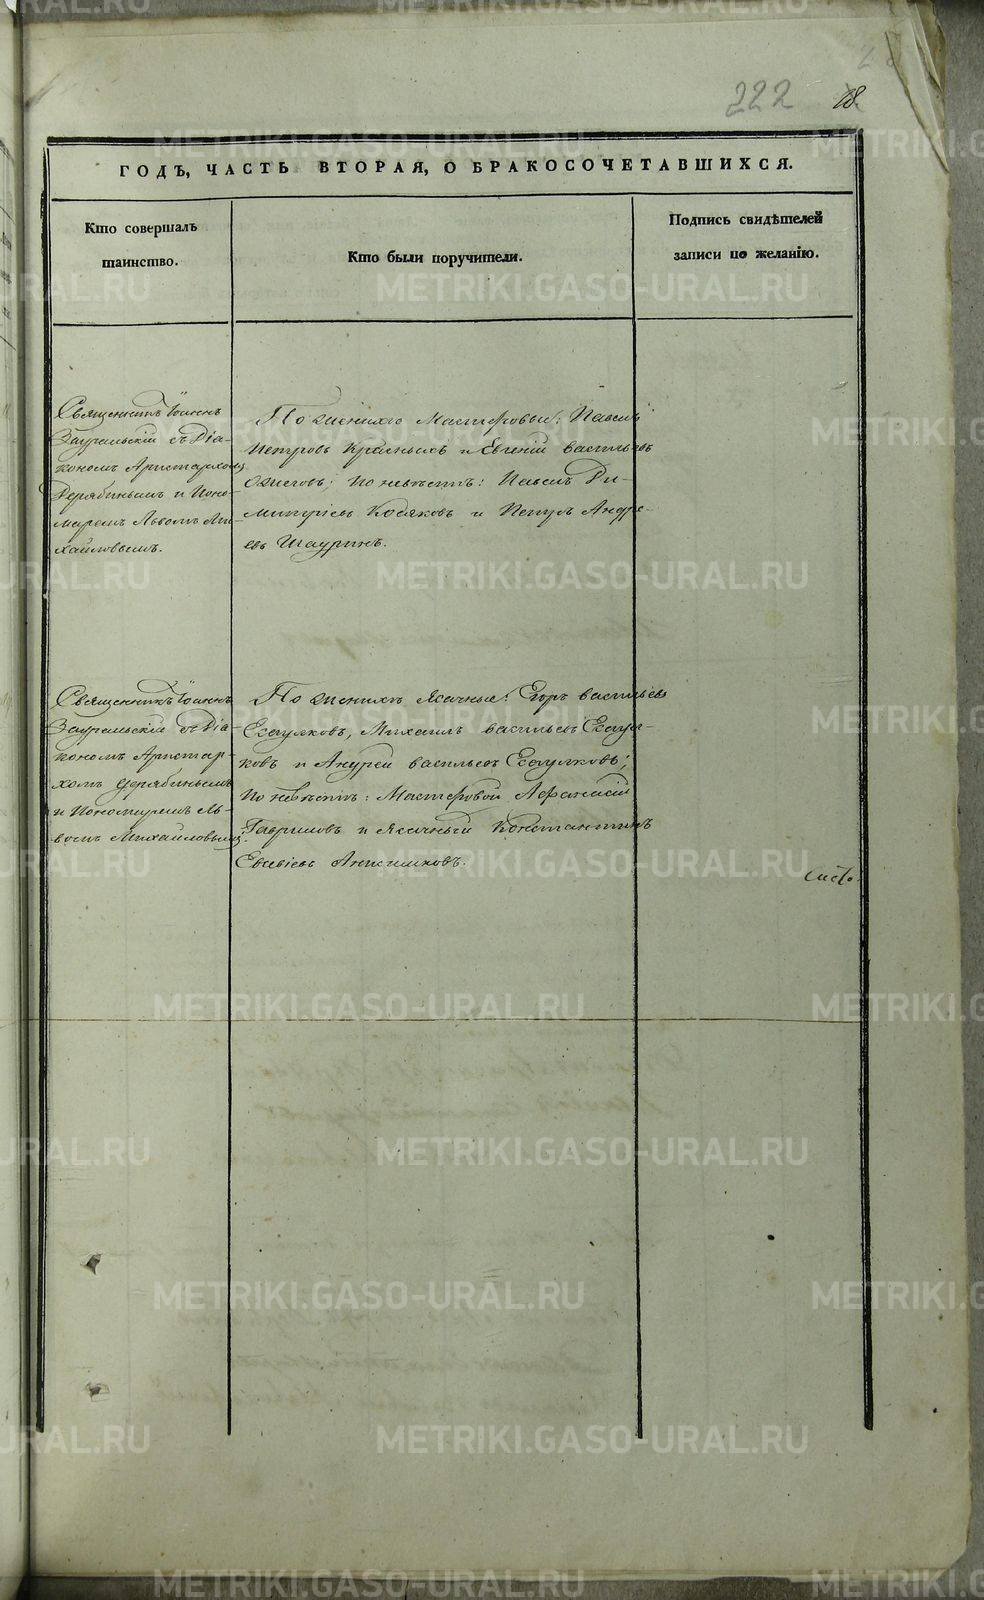 222 18
ГОДЪ, ЧАСТЬ ВТОРАЯ, О БРАКОСОЧЕТАВШИХСЯ.
Кто совершалъ
таинство.
Кто были поручители.
Подпись свидѣтелей
записи по желанію.
Священникъ Іоаннъ
Зауральскій съ Діа-
кономъ Аристархомъ
Дерябинымъ и Поно-
маремъ Львомъ Ми-
хайловымъ.
По женихѣ Мастеровые: Павелъ
Петровъ Красныхъ и Евгеній Васильевъ
Ожеговъ; По невѣстѣ: Павелъ Ди-
митріевъ Косяковъ и Петръ Андре-
евъ Шауринъ.
Священникъ Іоаннъ
Зауральскій съ Діа-
кономъ Аристар-
хомъ Дерябинымъ
и Пономаремъ Ль-
вомъ Михайловымъ.
По женихѣ Ясачные: Егоръ Васильевъ
Есаулковъ, Михаилъ Васильевъ Есаул-
ковъ и Андрей Васильевъ Есаулковъ;
По невѣстѣ: Мастеровой Афанасій
Гавриловъ и Ясачный Константинъ
Евсѣевъ Анисимковъ.
METRIKI.GASO-URAL.RU